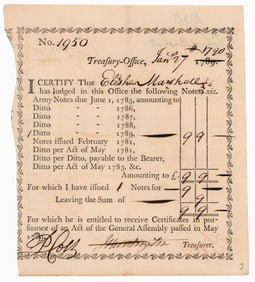 No. 1950
Treasury-Office, Jan. 27th 1790
1789.
I CERTIFY That Elisha Marshall
has lodged in this Office the following Notes, viz.
Army Notes due June 1, 1785, amounting to
Ditto " " 1786,
Ditto " " 1787,
Ditto " " 1788,
Ditto " " 1789. 9 9
Notes issued February 1781,
Ditto per Act of May 1781,
Ditto per Ditto, payable to the Bearer,
Ditto per Act of May 1783, &c.
Amounting to £ 9 9
For which I have issued 1 Notes for 9 9
Leaving the Sum of 9
For which he is entitled to receive Certificates in pur-
suance of an Act of the General Assembly passed in May
1789.
P Colt
Treasurer.